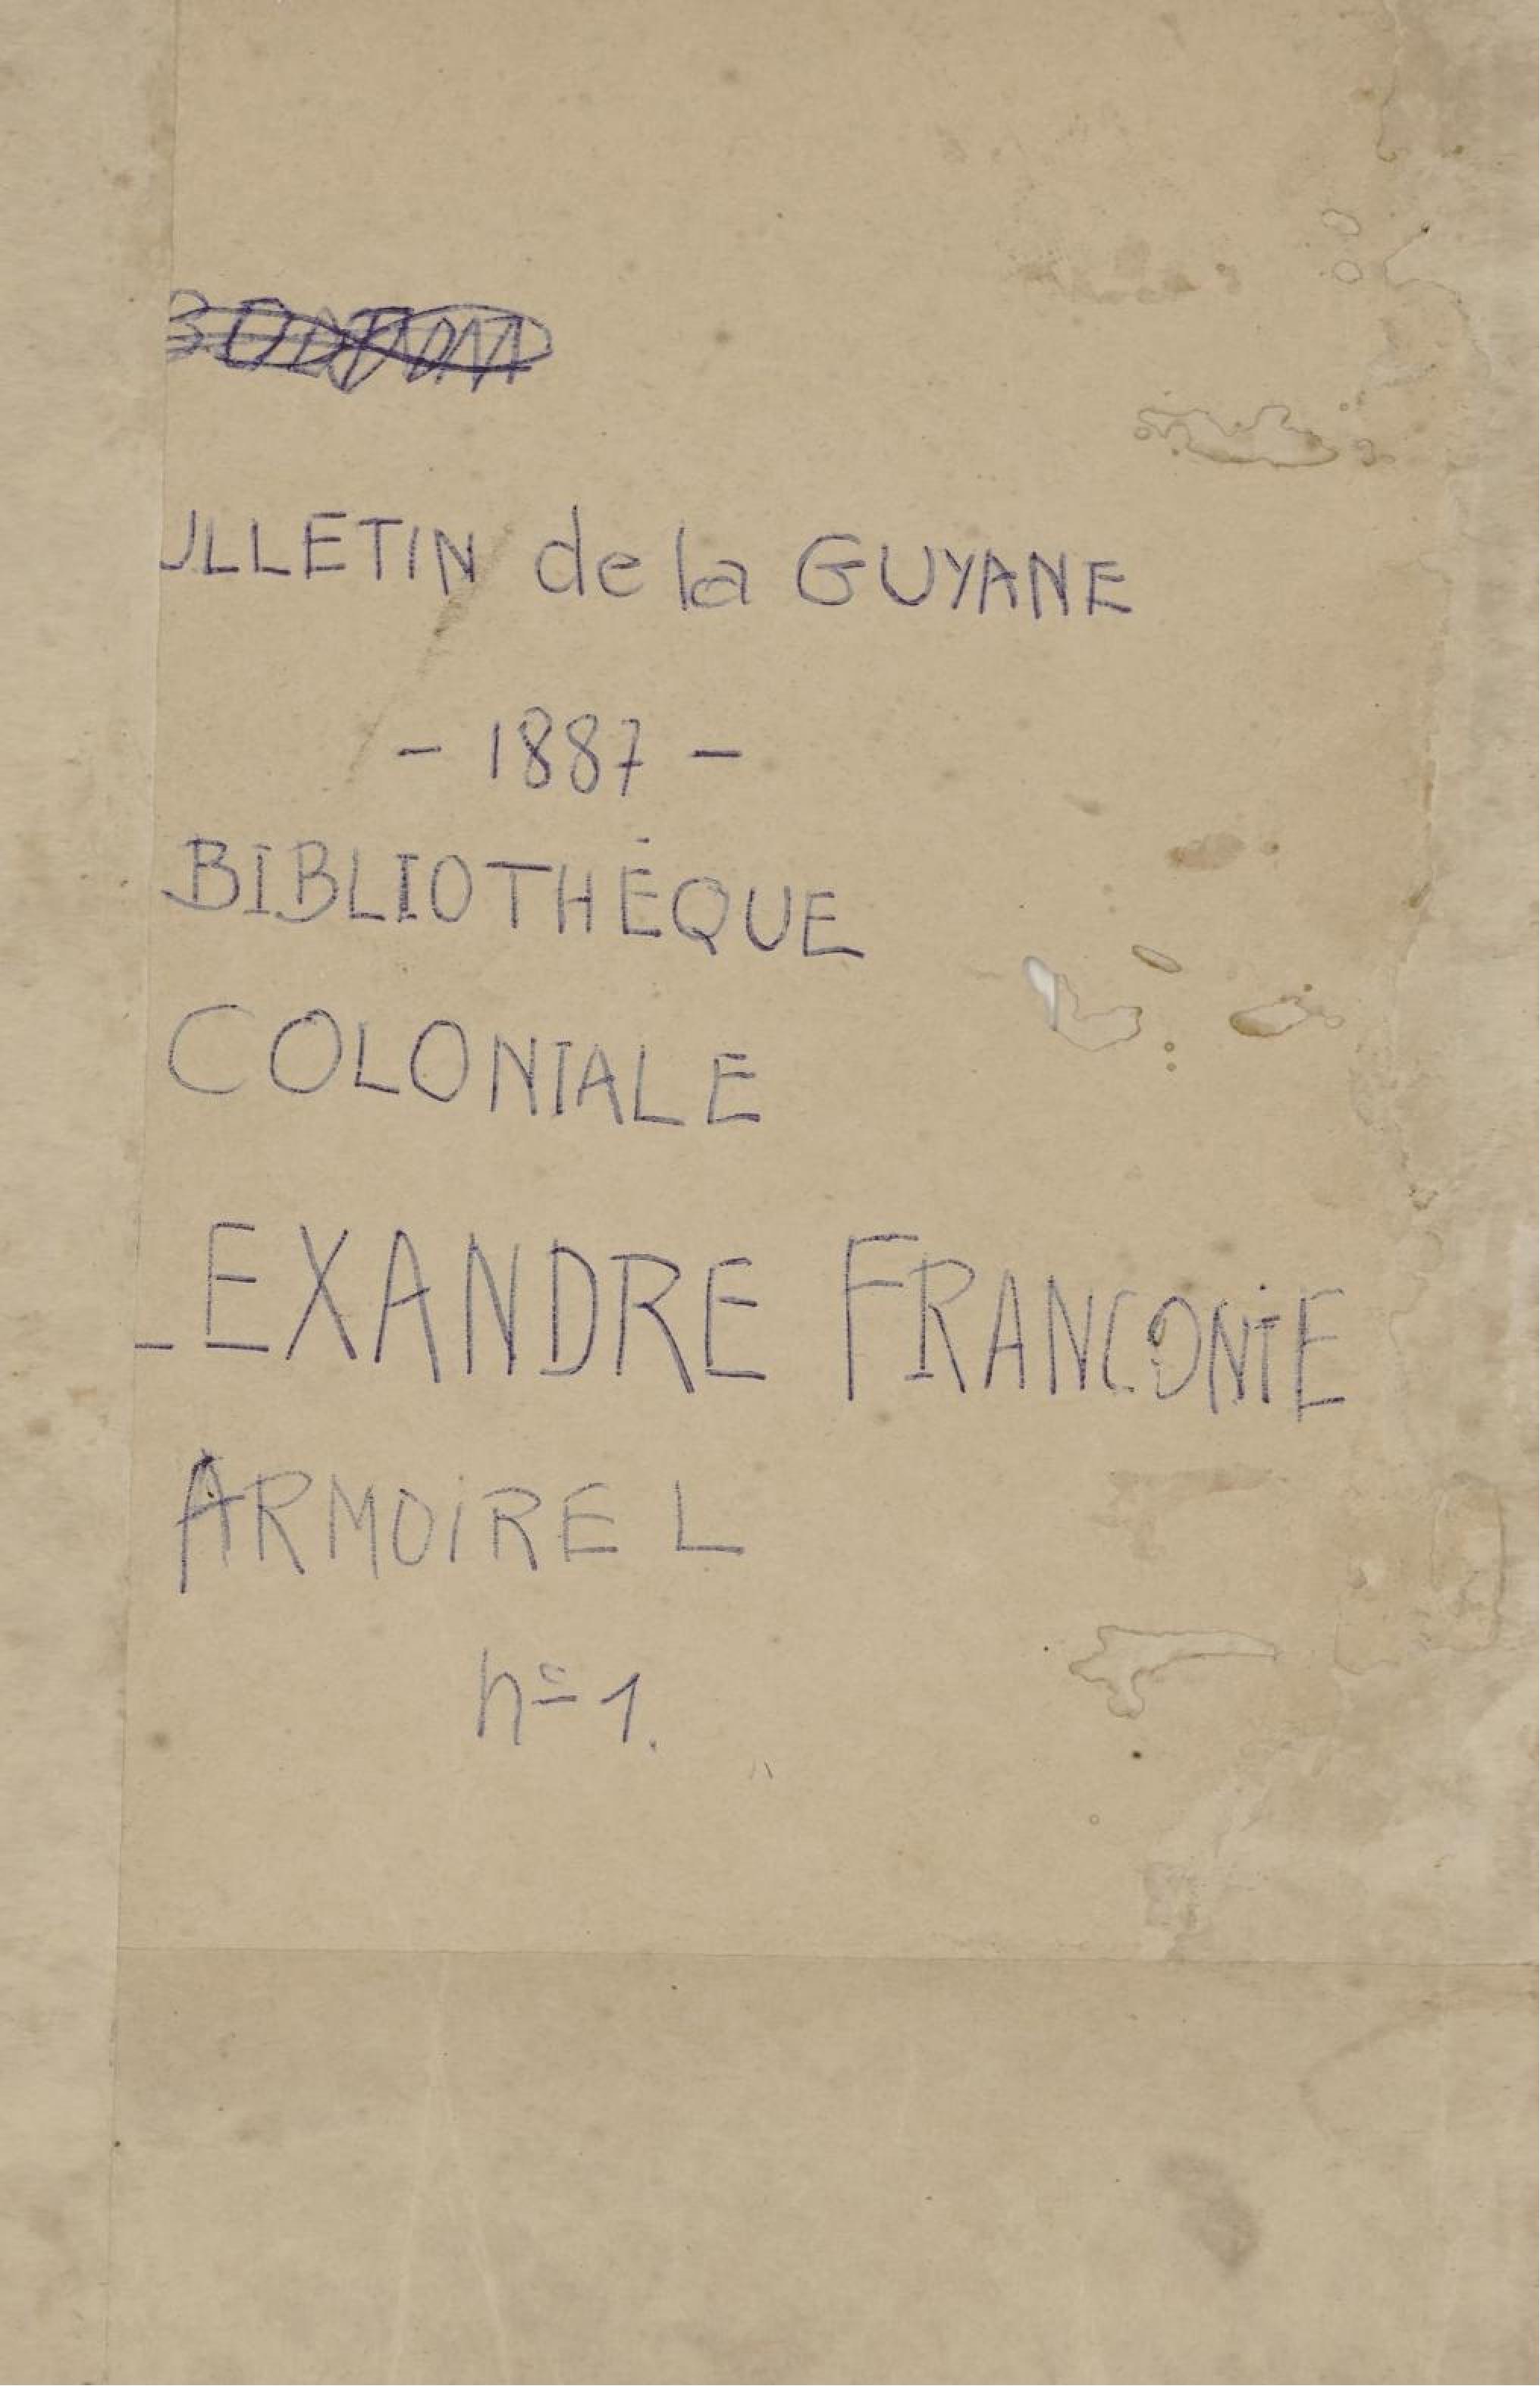 ULLETIN de la GUYANE
- 1887 -
BIBLIOTHÈQUE
COLONIALE
LEXANDRE FRANCONIE
ARMOIRE L
nº 1.